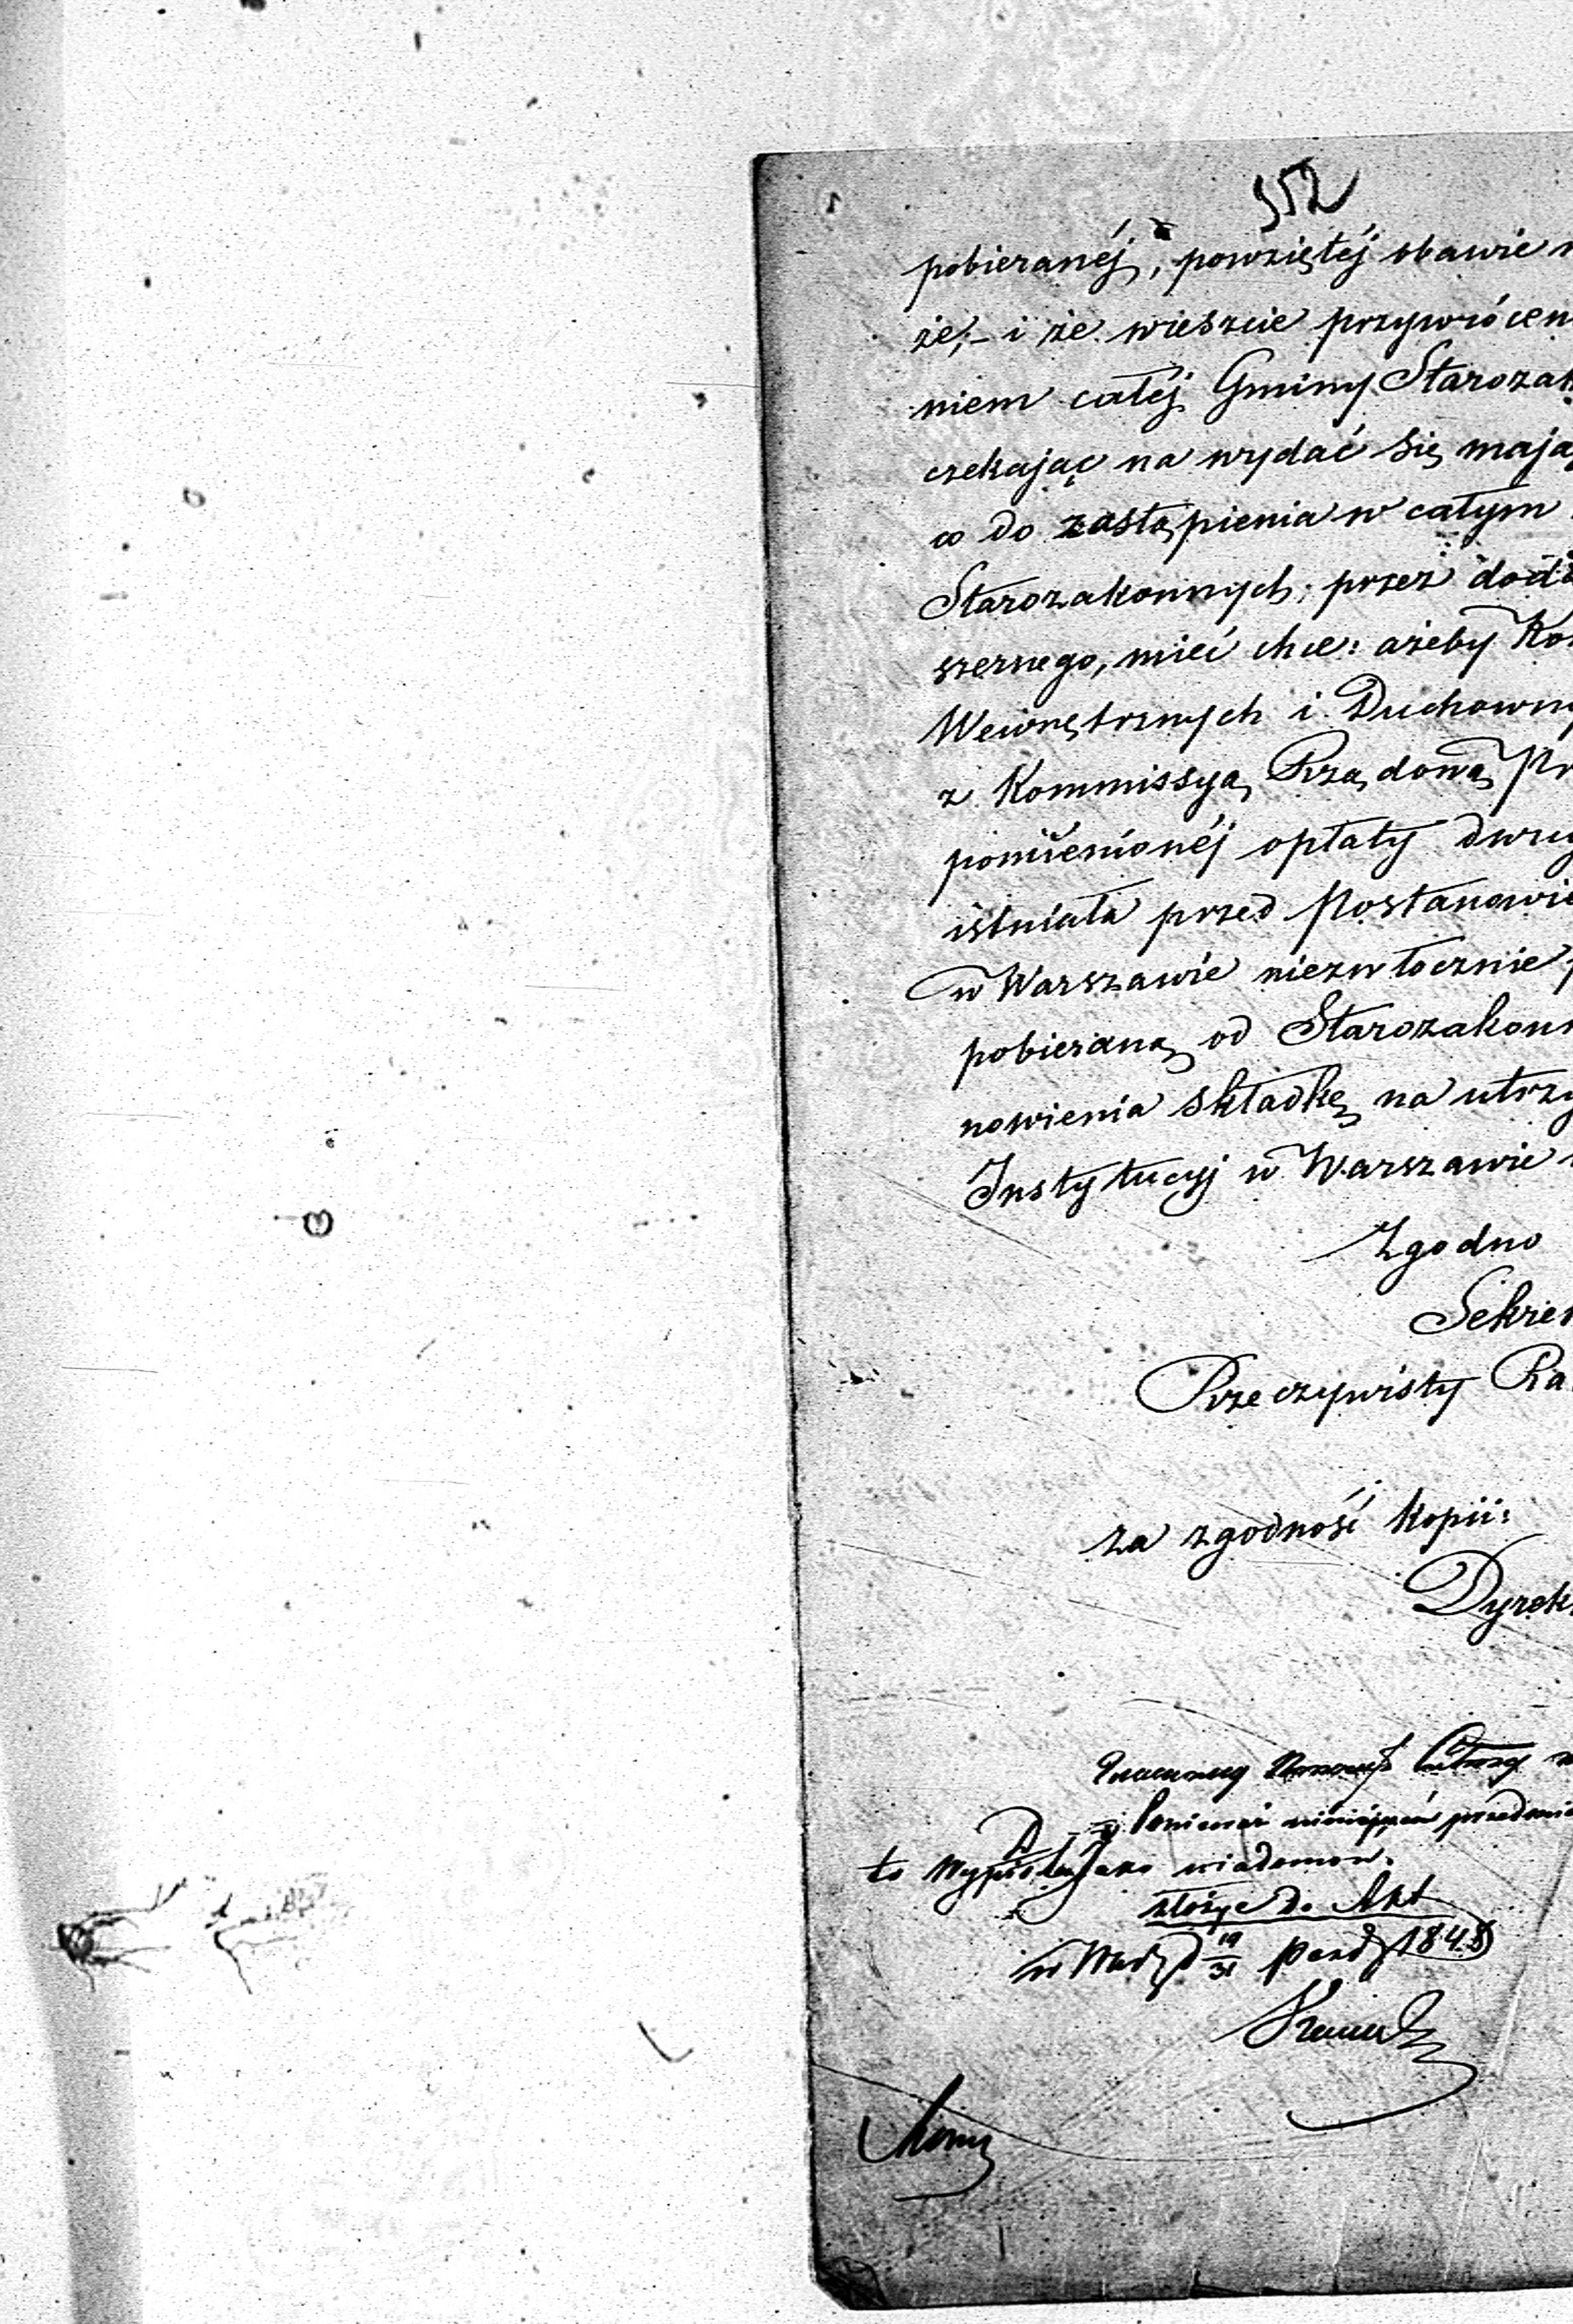 352
pobieranéj, powziętéj obawie
że,– i że wieszcie przywrócen
niem całéj Gminy Starozak
czekając na wydać się mają
co do zastąpienia w całym
Starozakonnych, przez doda
szernego, mieć chce: ażeby Kom
Wewnętrznych i Duchowny
z Kommissyą Rządową Pr
pomienionéj opłaty
istniała przed Postanowie
w Warszawie niezwłocznie
pobieraną od Starozakonn
nowienia składkę na utrzy
Instytucyj w Warszawie
Zgodno
Sekret
Rzeczywisty Ra
za zgodność kopii:
Dyrek
przedmio
to wiadomow.
złożyć do Akt
w d 19/31 Paźd 1848